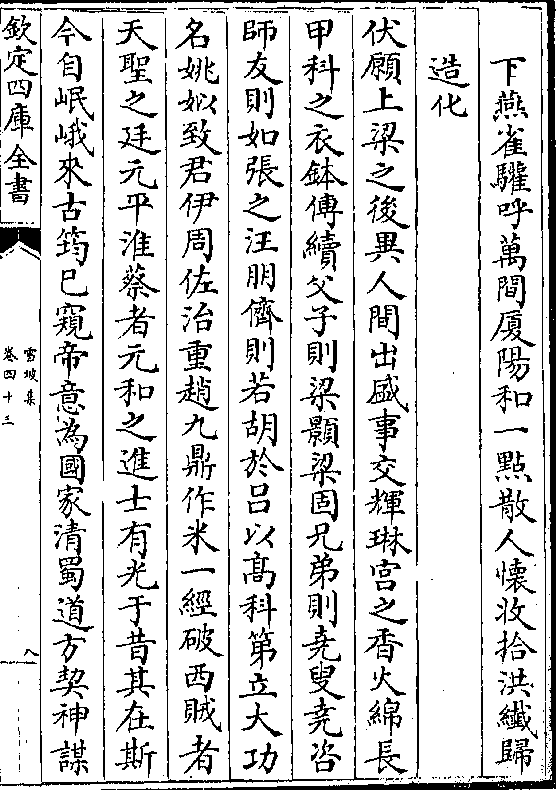 下燕雀驩呼萬間厦陽和一點散人懷收拾洪纎歸
造化
伏願上梁之後異人間出盛事交輝琳宫之香火綿長
甲科之衣鉢傳續父子則梁顥梁固兄弟則堯叟堯咨
師友則如張之汪朋儕則若胡於吕以髙科第立大功
名姚姒致君伊周佐治重趙九鼎作宋一經破西賊者
天聖之廷元平淮蔡者元和之進士有光于昔其在斯
今自岷峨來古筠已窺帝意為國家清蜀道方契神謀
欽定四庫全書
雪坡集
卷四十三
八